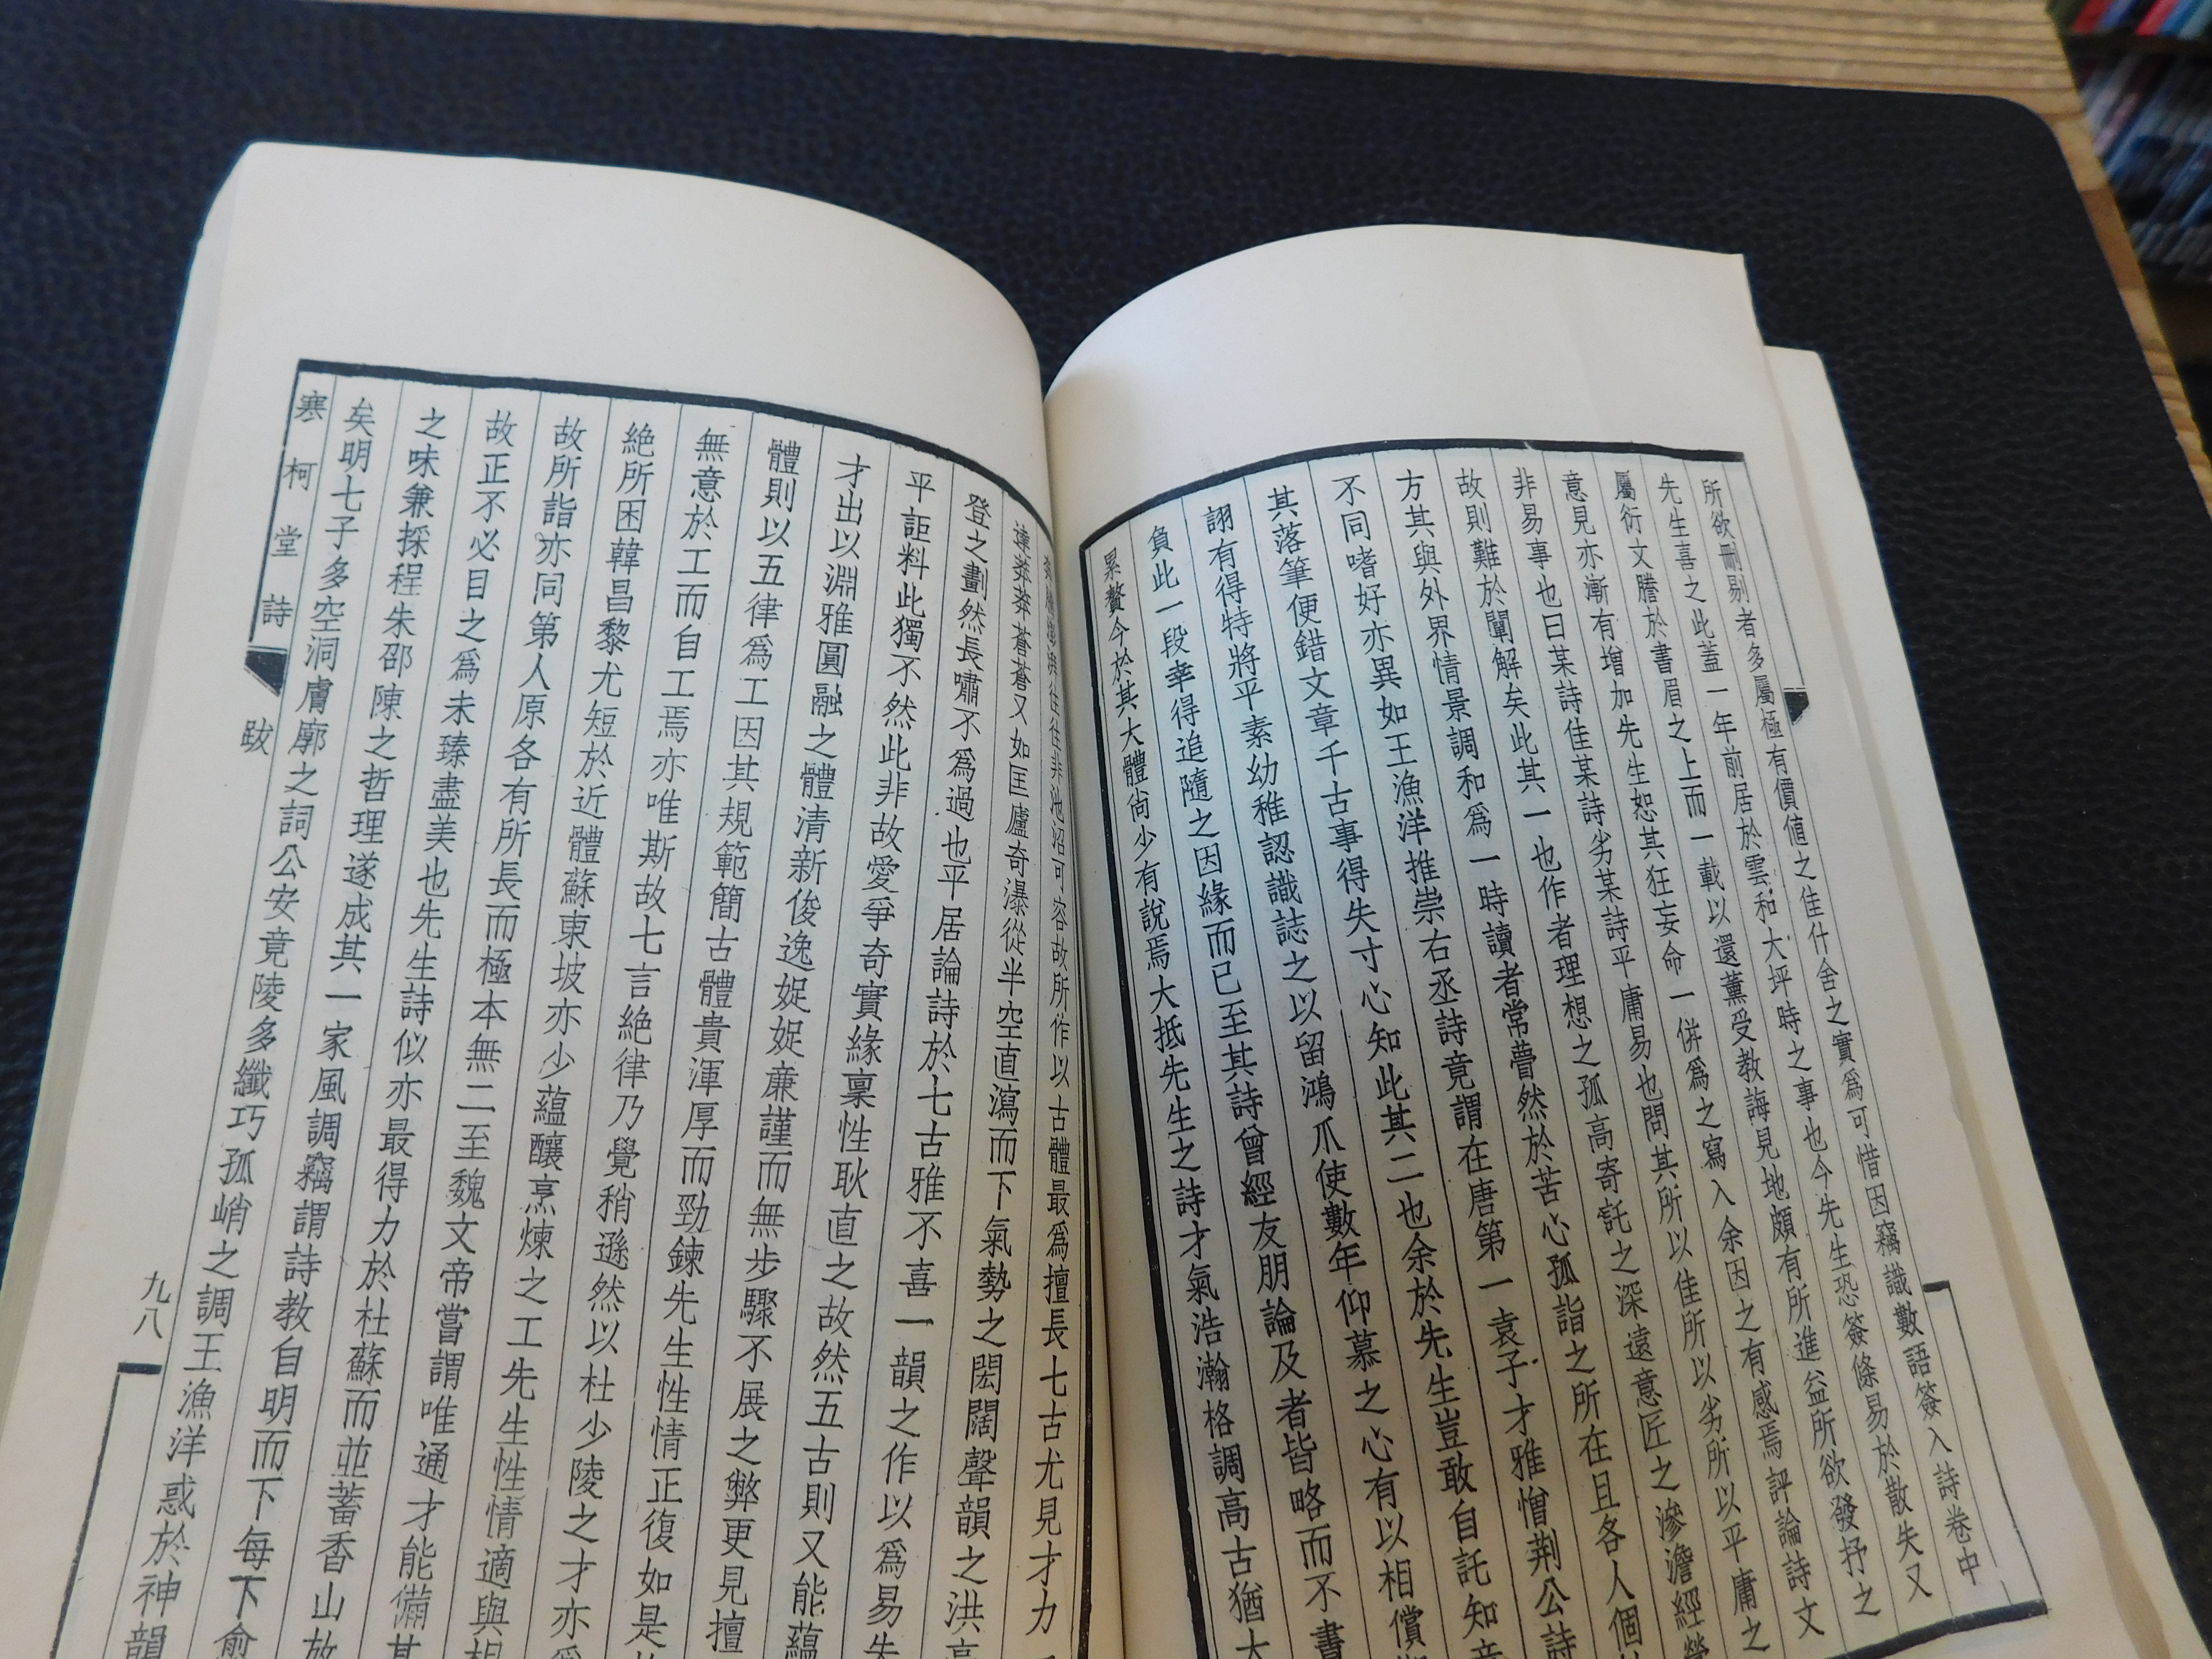 所欲刪剔者多屬極有價値之佳什舍之實爲可惜因竊識數語簽入詩卷中
先生喜之此蓋一年前居於雲和大坪時之事也今先生恐簽條易於散失又
屬衍文謄於書眉之上而一載以還薰受教誨見地頗有所進益所欲發抒之
意見亦漸有增加先生恕其狂妄命一併爲之寫入余因之有感焉評論詩文
非易事也曰某詩佳某詩劣某詩平庸易也問其所以佳所以劣所以平庸之
故則難於闡解矣此其一也作者理想之孤高寄託之深遠意匠之滲澹經營
方其與外界情景調和爲一時讀者常瞢然於苦心孤詣之所在且各人個
不同嗜好亦異如王漁洋推崇右丞詩竟謂在唐第一袁子才雅憎荆公詩
其落筆便錯文章千古事得失寸心知此其二也余於先生豈敢自託知音
詡有得特將平素幼稚認識誌之以留鴻爪使數年仰慕之心有以相償
負此一段幸得追隨之因緣而已至其詩曾經友朋論及者皆略而不書
累贅今於其大體尙少有說焉大抵先生之詩才氣浩瀚格調高古猶大
往往非池沼可容故所作以古體最爲擅長七古尤見才力
達莽莽蒼蒼又如匡廬奇瀑從半空直瀉而下氣勢之閎闊聲韻之洪亮
登之劃然長嘯不爲過也平居論詩於七古雅不喜一韻之作以爲易失
平詎料此獨不然此非故愛爭奇實緣稟性耿直之故然五古則又能蘊
才出以淵雅圓融之體清新俊逸娖娖亷謹而無步驟不展之弊更見擅
體則以五律爲工因其規範簡古體貴渾厚而勁鍊先生性情正復如是
無意於工而自工焉亦唯斯故七言絕律乃覺稍遜然以杜少陵之才亦爲
絕所困韓昌黎尤短於近體蘇東坡亦少蘊釀烹煉之工先生性情適與相
故所詣亦同第人原各有所長而極本無二至魏文帝嘗謂唯通才能備其
故正不必目之爲未臻盡美也先生詩似亦最得力於杜蘇而並蓄香山放
之味兼採程朱邵陳之哲理遂成其一家風調竊謂詩教自明而下每下愈
矣明七子多空洞膚廓之詞公安竟陵多纖巧孤峭之調王漁洋惑於神韻
寒柯堂詩 跋 九八